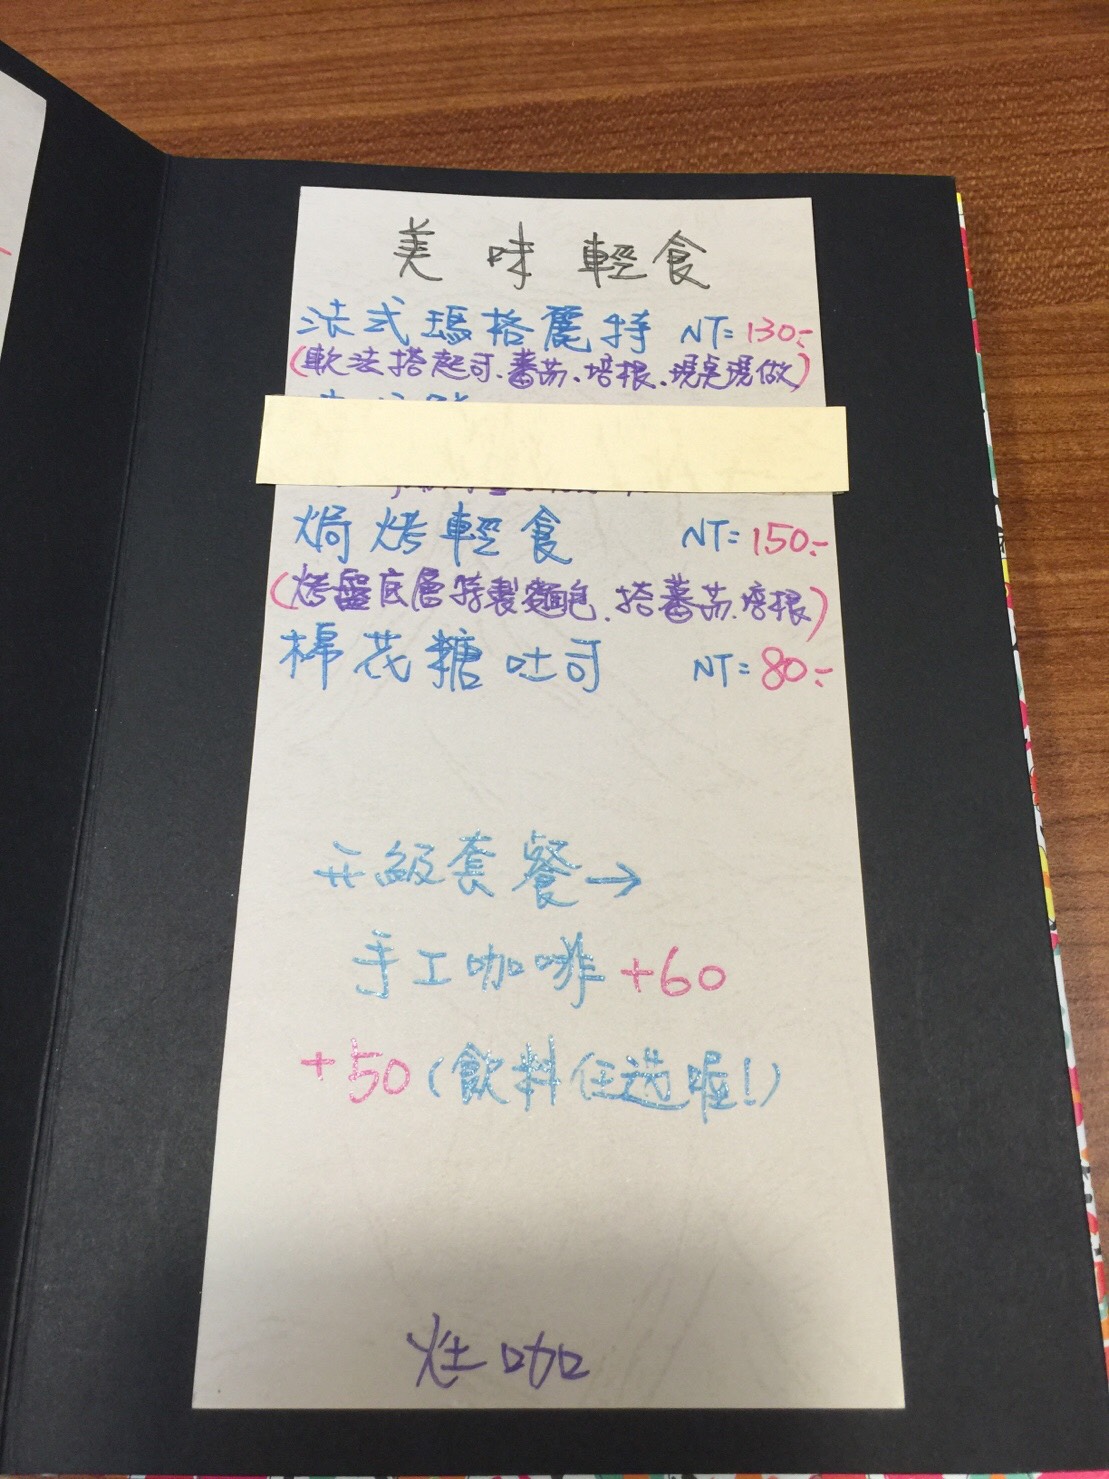 美味輕食
法式瑪格麗特 NT=130.-
(軟法搭起司、蕃茄、培根、現桌現做)
焗烤輕食 NT=150.-
(烤盤底層特製麵包、搭蕃茄、培根)
棉花糖吐司 NT=80.-
升級套餐→
手工咖啡+60
+50(飲料任選喔!)
灶咖